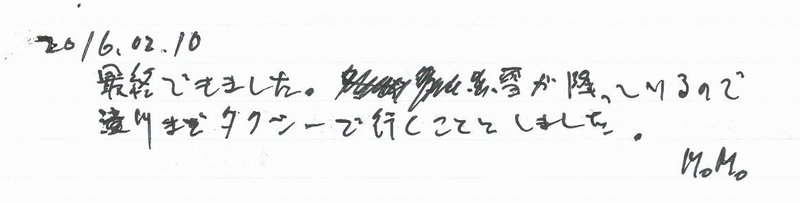 2016.02.10
最終できました。雪が降っているので
滝川までタクシーで行くことと しました。
M.M.